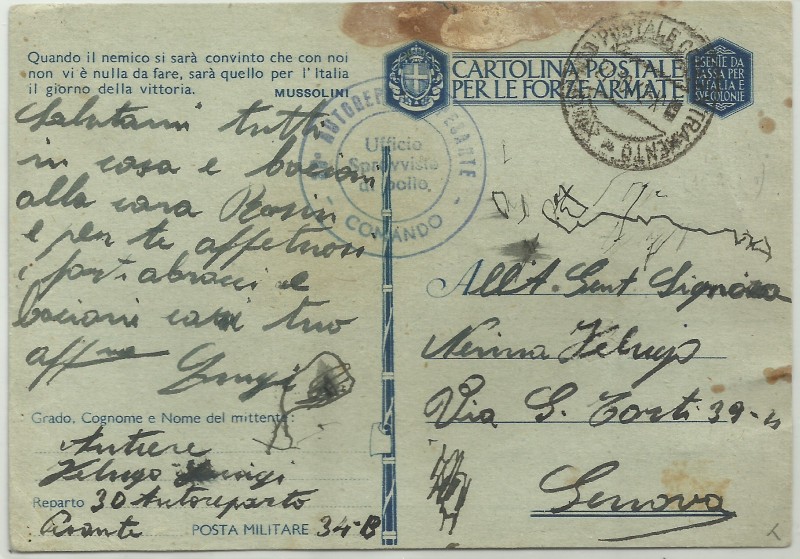 Quando il nemico si sarà convinto che con noi
non vi è nulla da fare, sarà quello per l'Italia
il giorno della vittoria. MUSSOLINI
CARTOLINA POSTALE
PER LE FORZE ARMATE
ESENTE DA
TASSA PER
L'ITALIA E
SVE COLONIE
Ufficio
Sprovvisto
di bollo
COMANDO
Salutami tutti
in casa e baciami
alla cara Rosin
e per te affettuosi
i forti abracci e
bacioni cari tuo
aff mo Luigi
Grado, Cognome e Nome del mittente:
Autiere
Luigi
Reparto 30 Autoreparto
Pesante POSTA MILITARE 34-B
All'A. Gent Signora
Nerina
Via S. Torti 39-11
Genova